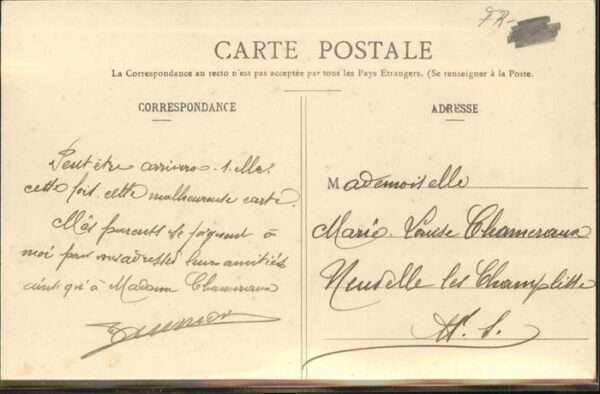 FR-
CARTE POSTALE
La Correspondance au recto n'est pas acceptée par tous les Pays Etrangers. (Se renseigner à la Poste.
CORRESPONDANCE
Peut être arrivera-t-elle
cette fois, cette malheureuse carte.
Mes parents se joignent à
moi pour vous adresser leurs amitiés
ainsi qu'à Madame Chamereaux
ADRESSE
Mademoiselle
Marie Louise Chamereaux
Neuvelle les Champlitte
Hte S.